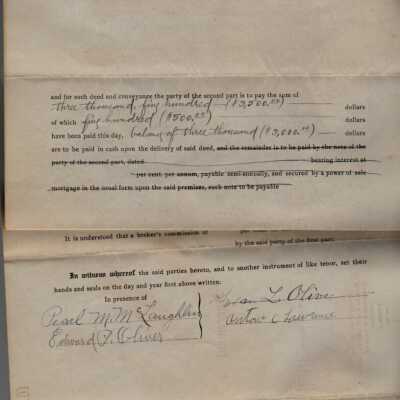 and for such deed and conveyance the party of the second part is to pay the sum of
three thousand, five hundred ($3,500.00) dollars
of which five hundred ($500.00) dollars
have been paid this day, balance of three thousand ($3,000.00) dollars
are to be paid in cash upon the delivery of said deed, and the remainder is to be paid by the note of the
party of the second part, dated bearing interest at
per cent. per annum, payable semi-annually, and secured by a power of sale
mortgage in the usual form upon the said premises, such note to be payable
It is understood that a broker's commission of per
by the said party of the first part.
In witness whereof the said parties hereto, and to another instrument of like tenor, set their
hands and seals on the day and year first above written.
In presence of
Pearl M. McLaughlin
Edward P. Oliver
L. Oliver
Lawrence